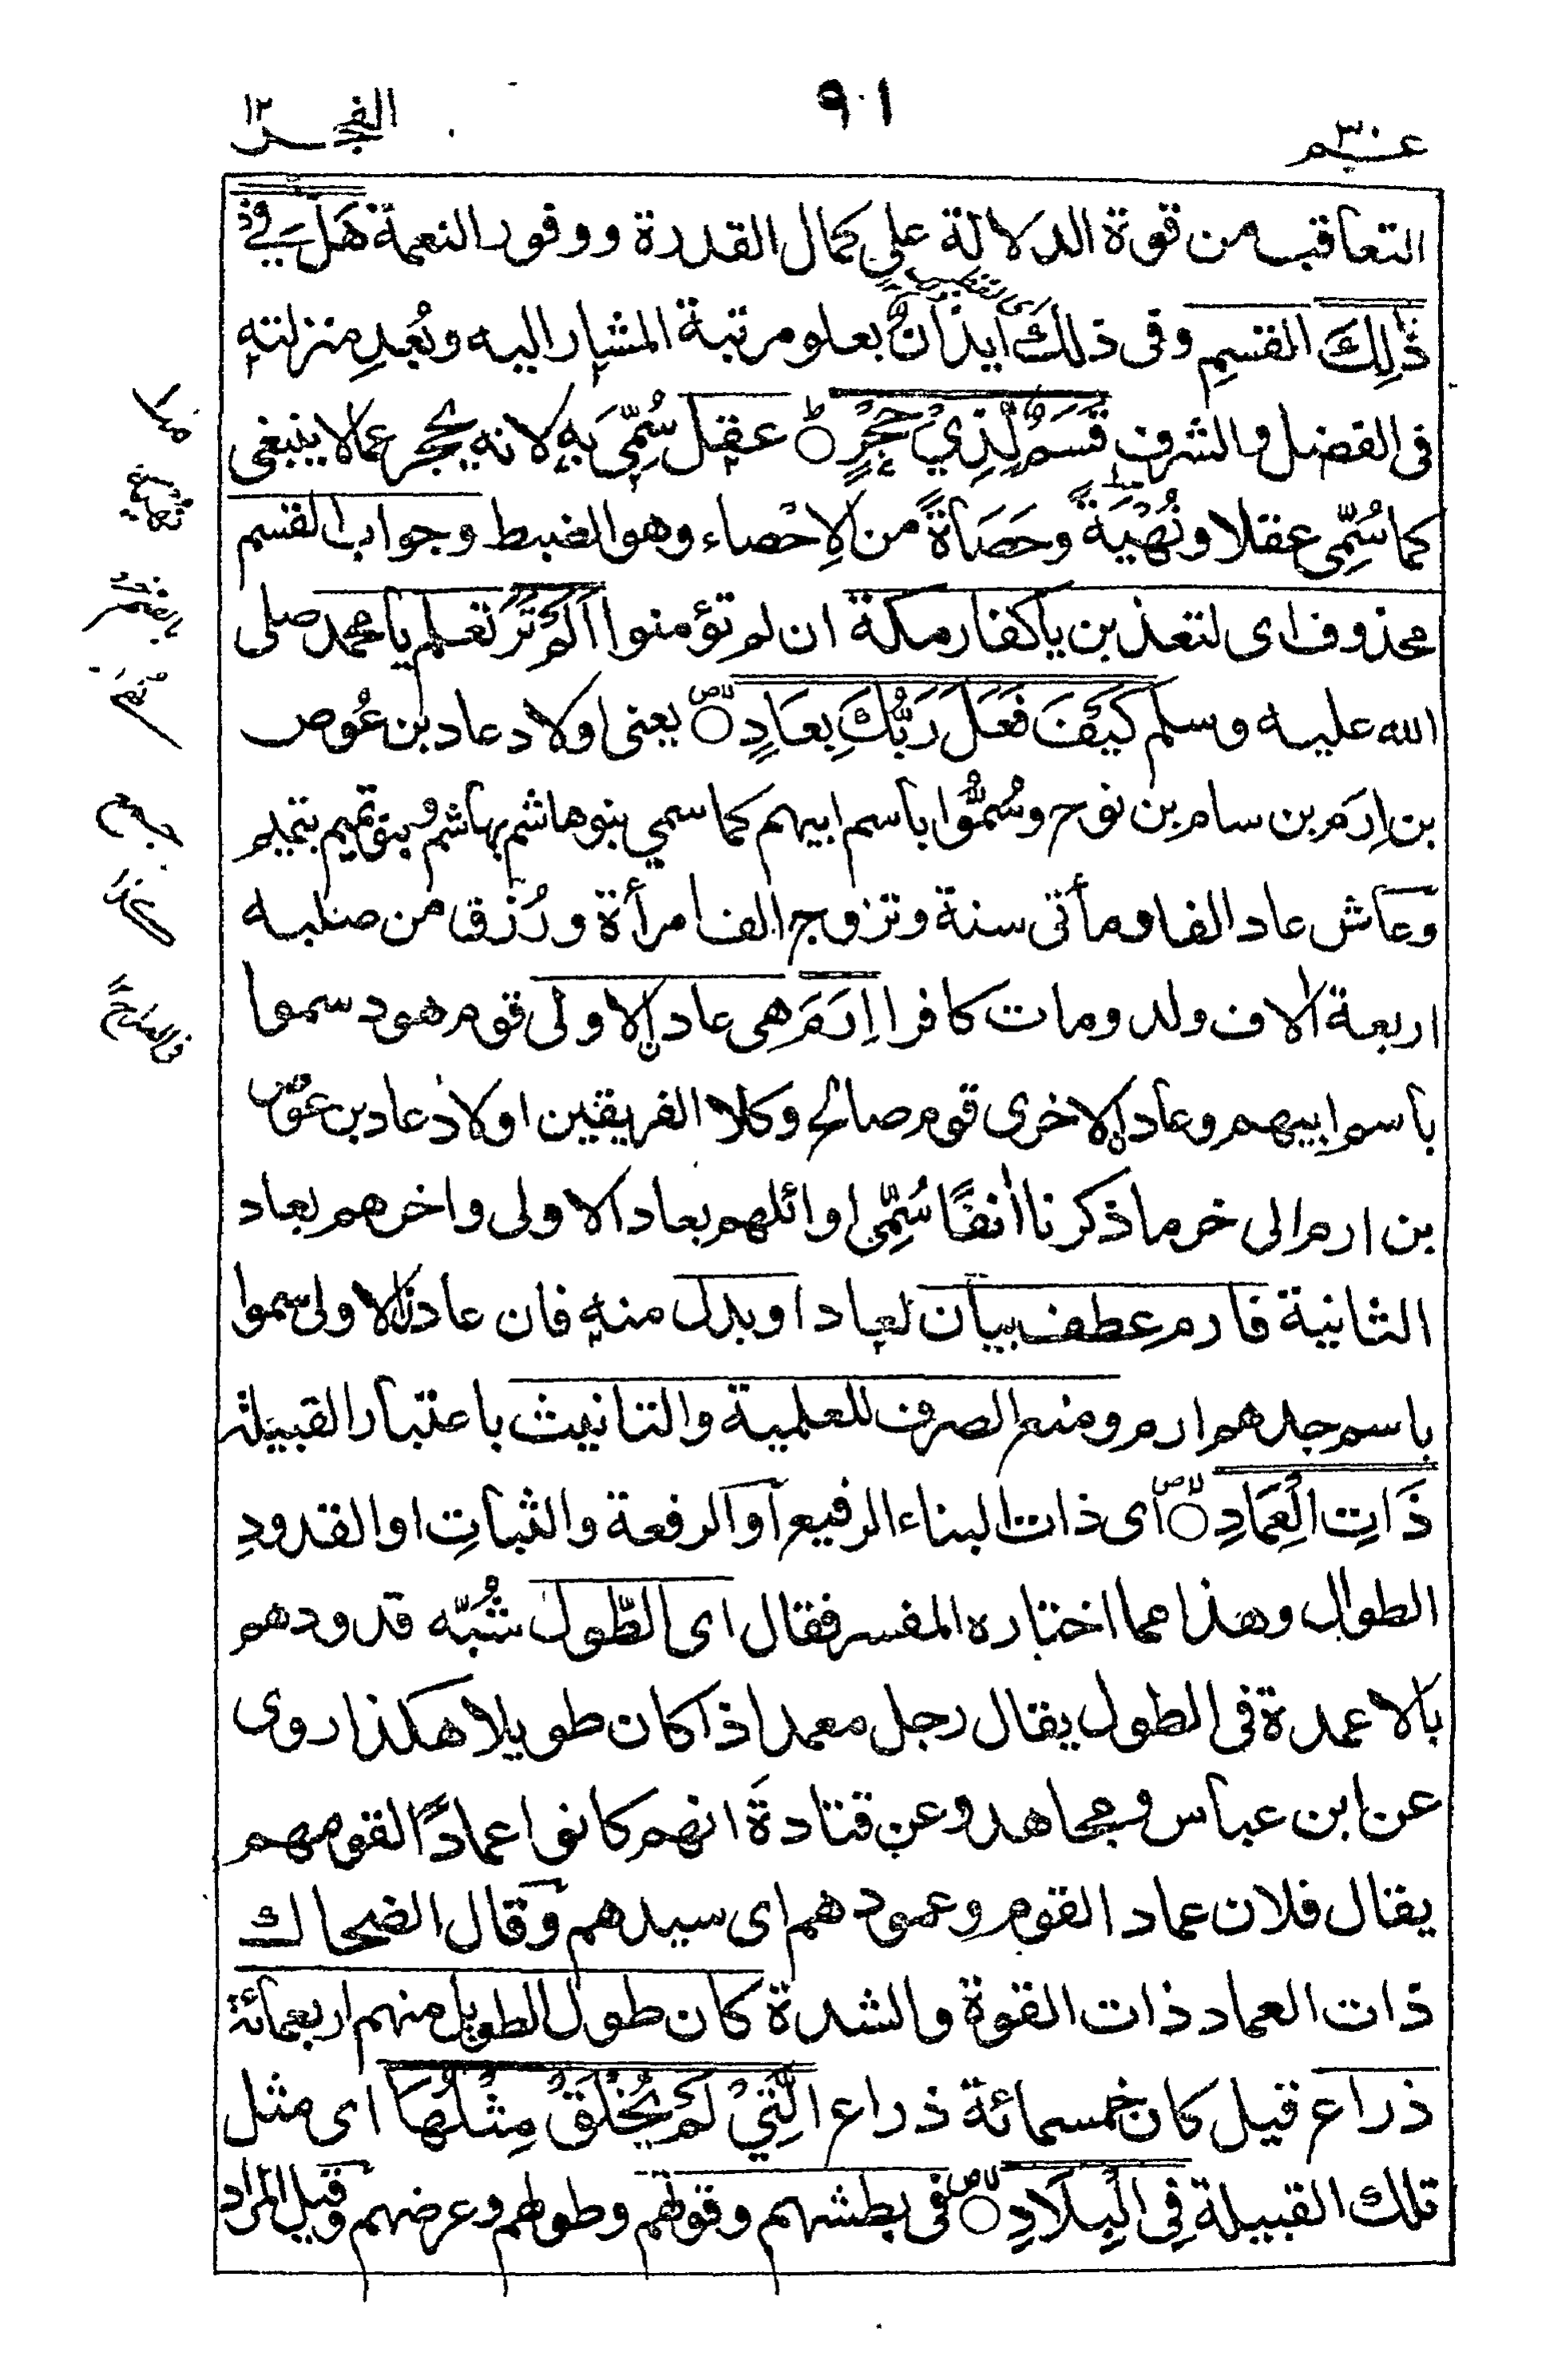 عـم ٣٠
٩٠١
الفجر ١٢
التعاقب من قوة الدلالة على كمال القدرة ووفور النعمة هَلْ فِيْ
ذٰلِكَ القسمِ وفى ذلك ايذانٌ بعلو مرتبة المشار اليه وبُعدِ منزلته
فى الفضل والشرف قَسَمٌ لِّذِيْ حِجْرٍ عقل سُمِّىَ به لانه يحجر عمالا ينبغى
كما سُمِّى عقلا ونُهْيَةً وحَصَاةً من الاِحْصاء وهو الضبط وجواب القسم
محذوف اى لتعذبن ياكفار مكة ان لم تؤمنوا اَلَمْ تَرَ تعلم يا محمد صلى
الله عليه وسلم كَيْفَ فَعَلَ رَبُّكَ بِعَادٍ يعنى اولاد عاد بن عُوص
بن اِرَم بن سام بن نوح وسُمُّوا باسم ابيهم كما سمي بنو هاشم بهاشم وبنو تميم بتميم
وعاش عاد الفا ومأتى سنة وتزوج الف امرأة ورُزق من صلبه
اربعة اٰلاف ولد ومات كافرا اِرَمَ هى عاد الاولى قوم هود سموا
باسم ابيهم وعاد الاخرى قوم صالح وكلا الفريقين اولاد عاد بن عوص
بن ارم الى خر ما ذكرنا اٰنفًا سُمِّى اوائلهم بعاد الاولى واخرهم بعاد
الثانية فارم عطف بيان لعاد او بدل منه فان عاد الاولى سموا
باسم جدهم ارم ومنع الصرف للعلمية والتانيث باعتبار القبيلة
ذَاتِ الْعِمَادِ اى ذات البناء الرفيع او الرفعة والثباتِ او القدودِ
الطوال وهذا مما اختاره المفسر فقال اى الطول شُبّه قدودهم
بالاعمدة فى الطول يقال رجل معمد اذا كان طويلا هكذا روى
عن ابن عباس ومجاهد وعن قتادةَ انهم كانوا عمادًا لقومهم
يقال فلان عماد القوم وعمودهم اى سيدهم وقال الضحاك
ذات العماد ذات القوة والشدة كان طول الطويل منهم اربعمائة
ذراع قيل كان خمسمائة ذراع الَّتِيْ لَمْ يُخْلَقْ مِثْلُهَا اى مثل
تلك القبيلة فِى الْبِلَادِ فى بطشهم وقوتهم وطولهم وعرضهم وقيل المراد